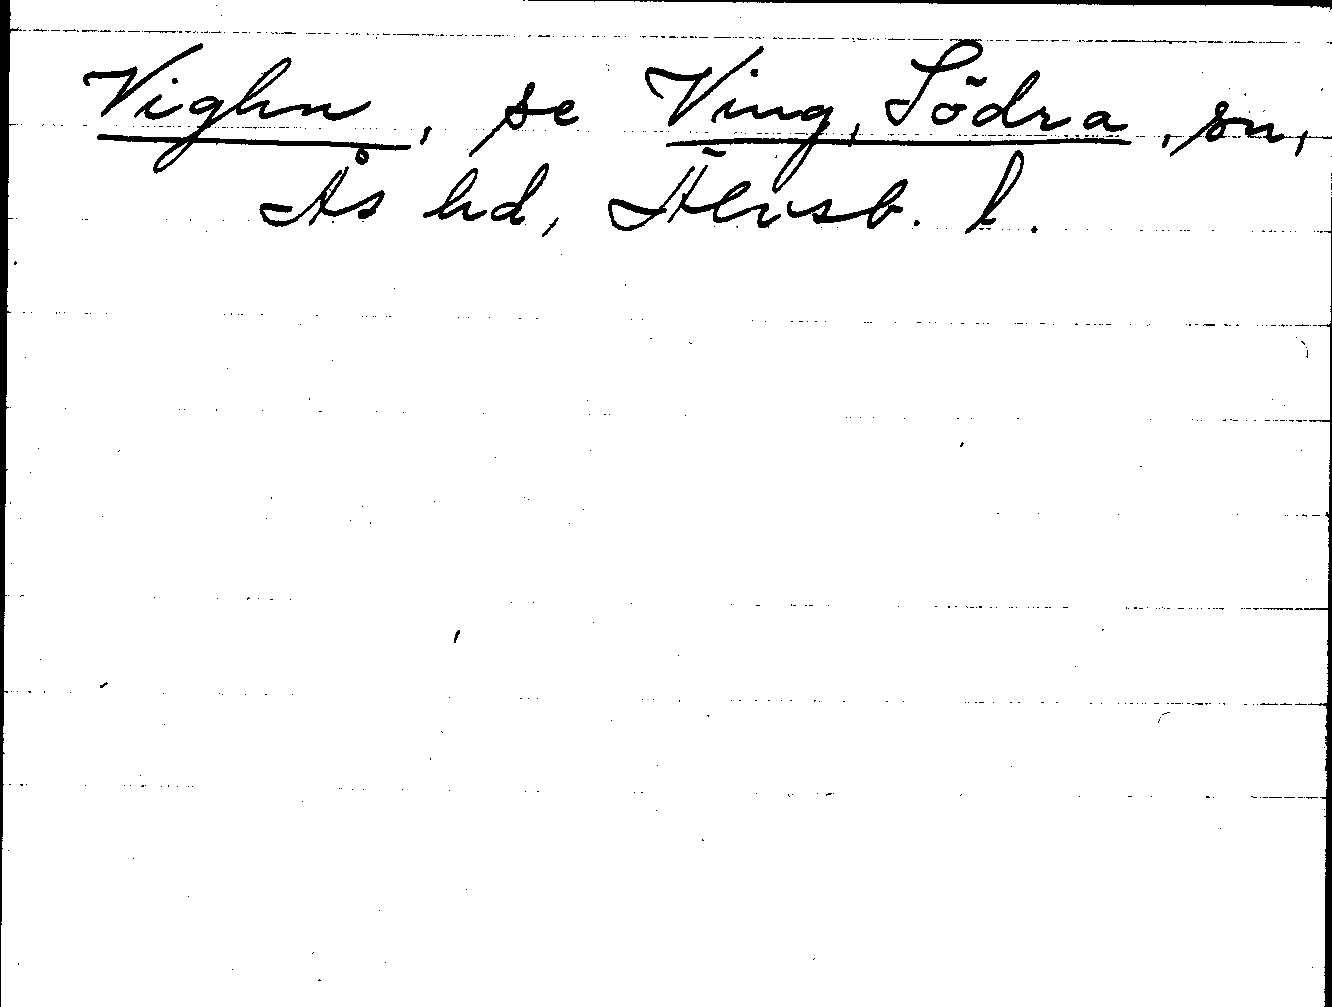 Vighn, se Ving, Södra, sn,
Ås hd, Älvsb. l.